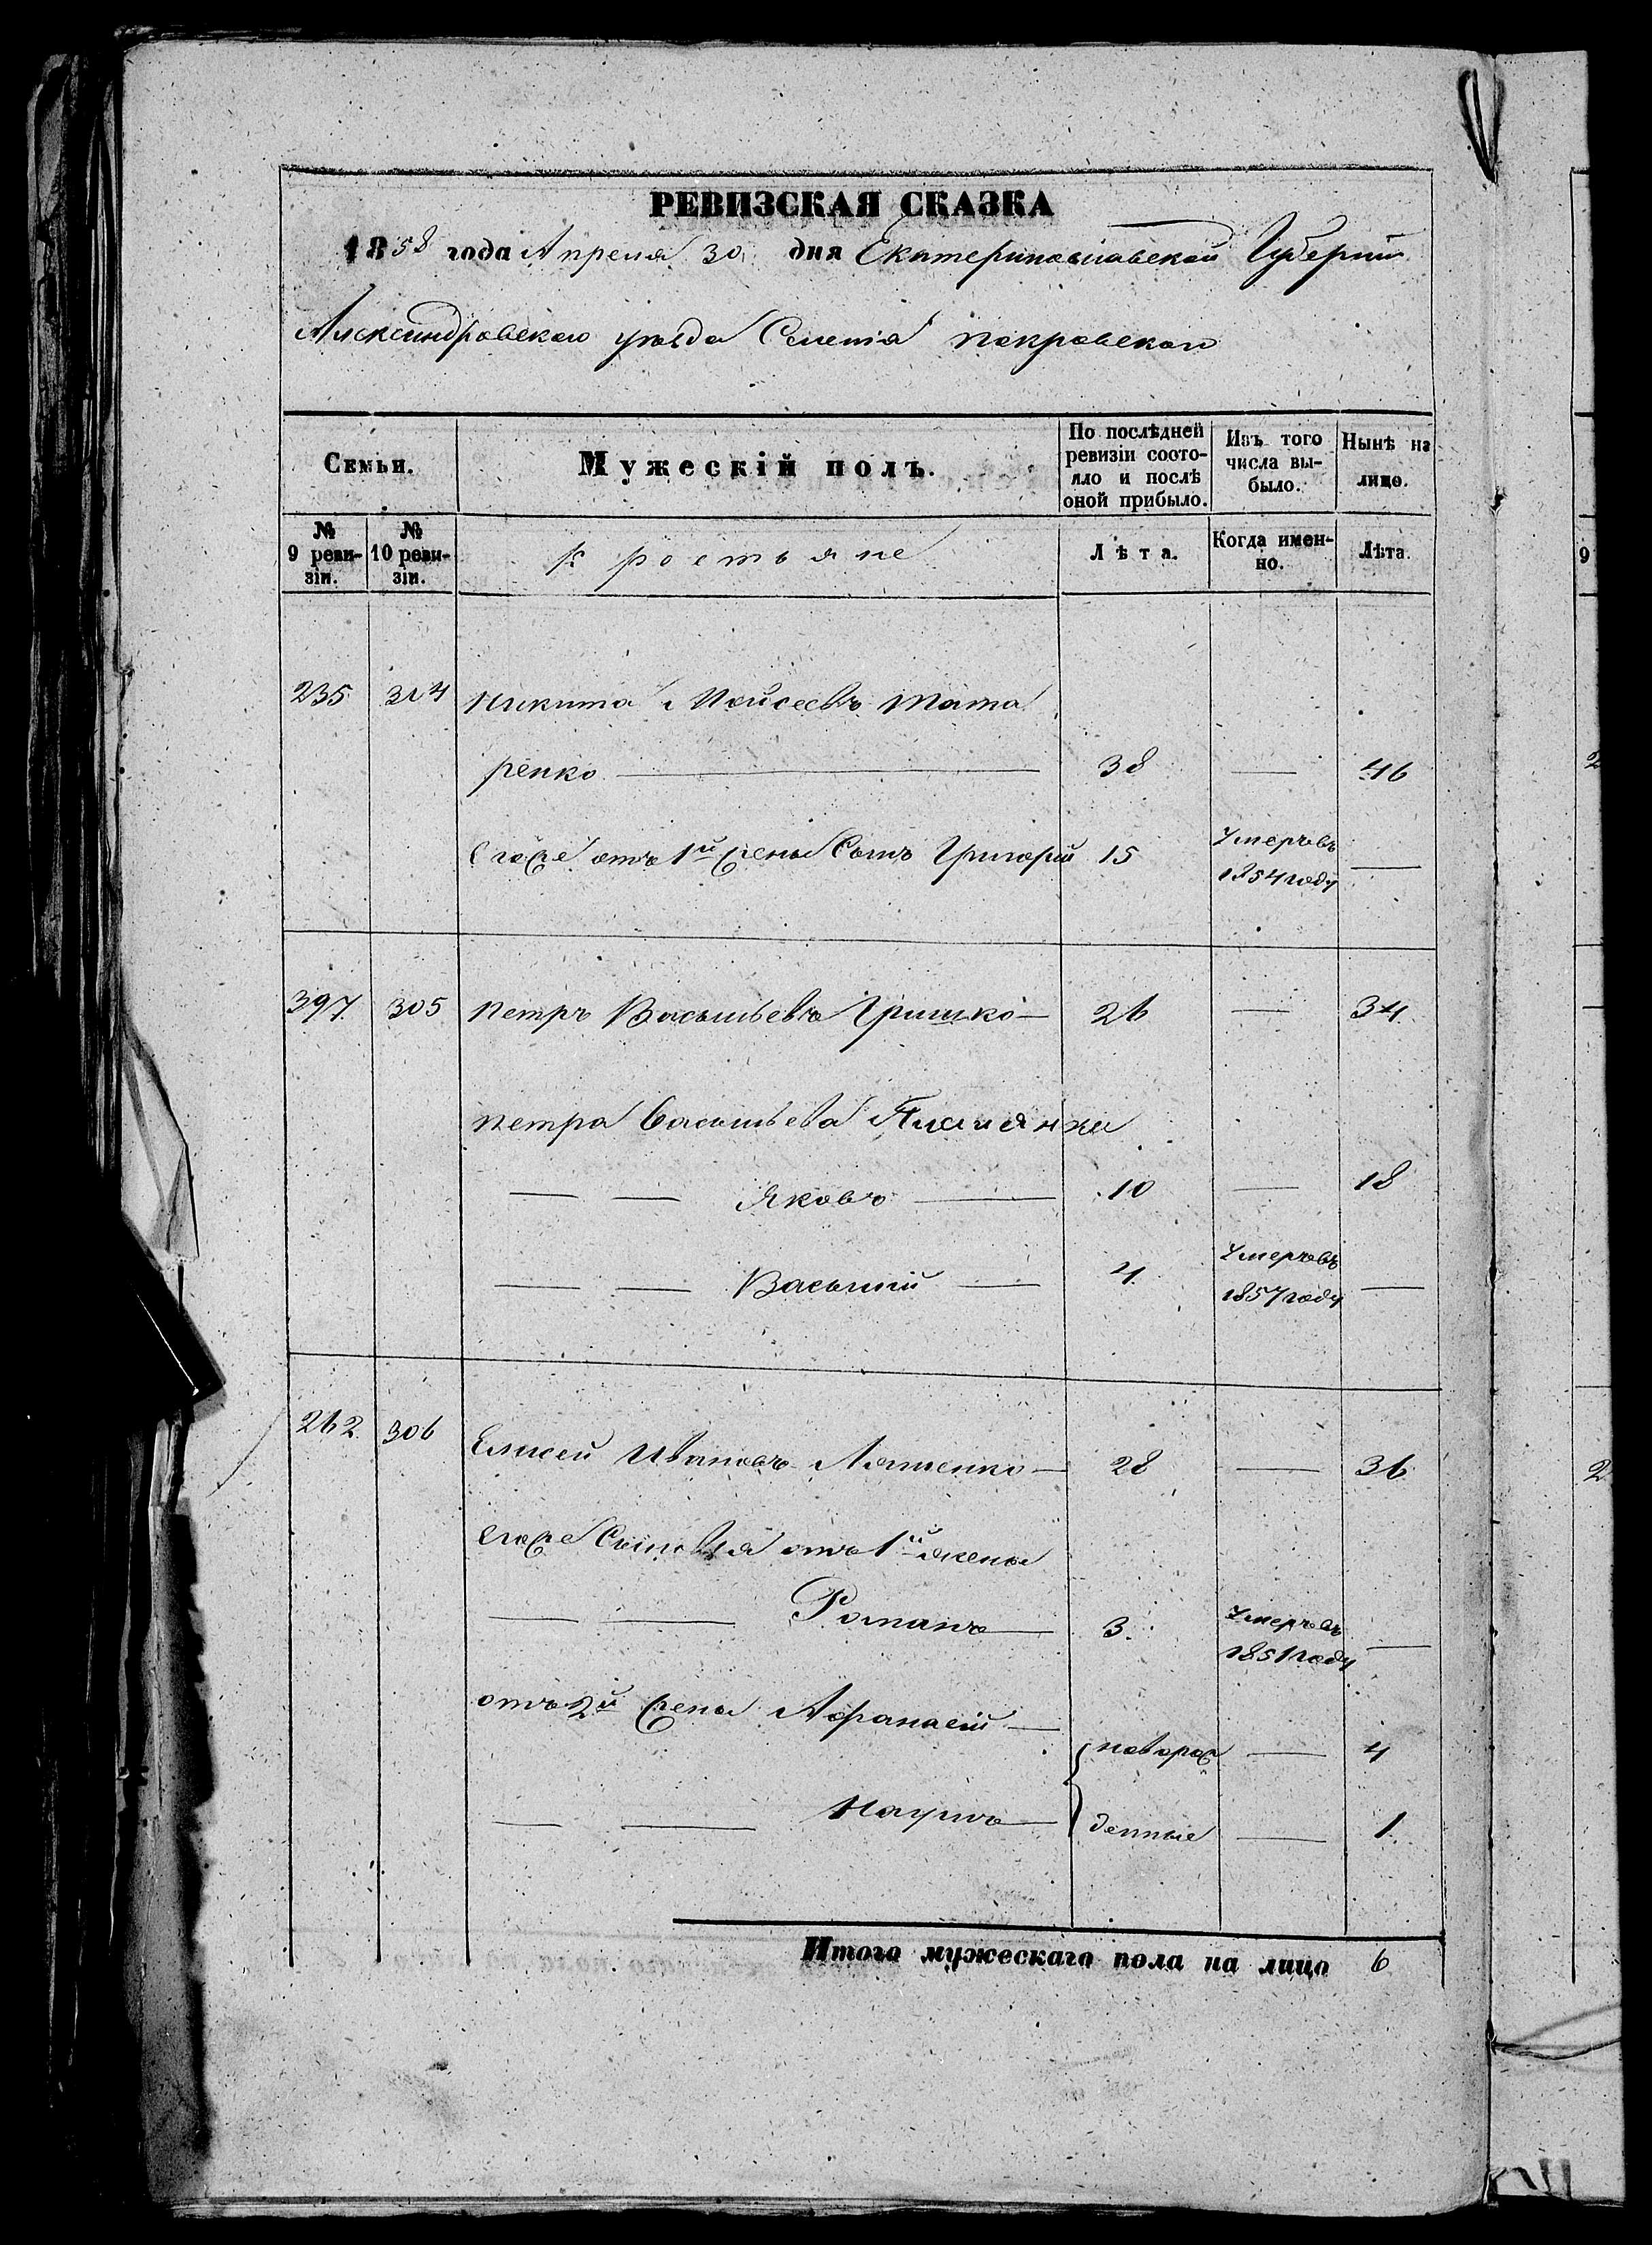 РЕВИЗСКАЯ СКАЗКА
1858 года Апреля 30 дня Екатеринославской Губернии
Александровского уезда Селения покровского
Семьи.
Мужескій полъ.
По послѣдней ревизіи состояло и послѣ оной прибыло.
Изъ того числа выбыло.
Нынѣ на лицо.
№ 9 ревизіи.
№ 10 ревизіи.
крестьяне
Лѣта.
Когда именно.
Лѣта.
235 304 Никита Мойсеевъ Тата
ренко — 38 — 46
Егоже отъ 1й жены Сынъ Григорій 15 Умеръ въ
1854 году —
397 305 Петръ Васильевъ Гришко — 26 — 34
Петра Васильева
— — Яковъ — 10 — 18
— — Василий — 4 Умеръ въ
1857 году —
262 306 Елисей Ивановъ Ляшенко — 28 — 36
Егоже Сыновья отъ 1й жены
— — Романъ — 3 Умеръ въ
1851 году —
отъ 2й жены Афанасій —
новорож — 4
— — Наумъ — денные — 1
Итого мужескаго пола на лицо 6
9
2
2